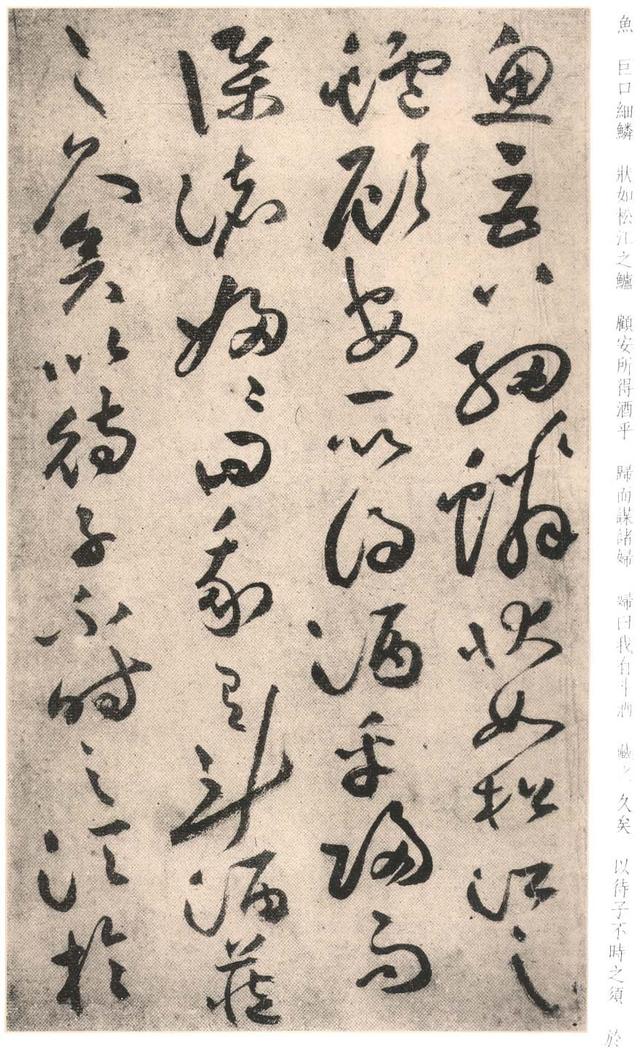 魚巨口細鱗狀如松江之
鱸顧安所得酒乎歸而
謀諸婦婦曰我有斗酒藏
之久矣以待子不時之須於
魚 巨口細鱗 狀如松江之鱸 顧安所得酒乎 歸而謀諸婦 婦曰我有斗酒 藏之 久矣 以待子不時之須 於